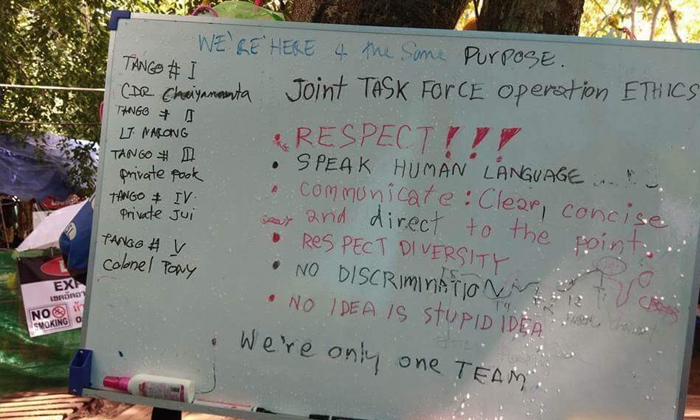 WE'RE HERE 4 the Same PURPOSE.
Joint TASK FORCE Operation ETHICS
TANGO # I
CDR Chaiyananta
TANGO # II
LT NARONG
TANGO # III
private Pook
TANGO # IV
Private Jui
TANGO # V
Colonel TONY
• RESPECT!!!
• SPEAK HUMAN LANGUAGE
• Communicate: Clear, concise
and direct to the point.
• RESPECT DIVERSITY
• NO DISCRIMINATION
• NO IDEA IS STUPID IDEA
We're only one TEAM.
NO
SMOKING